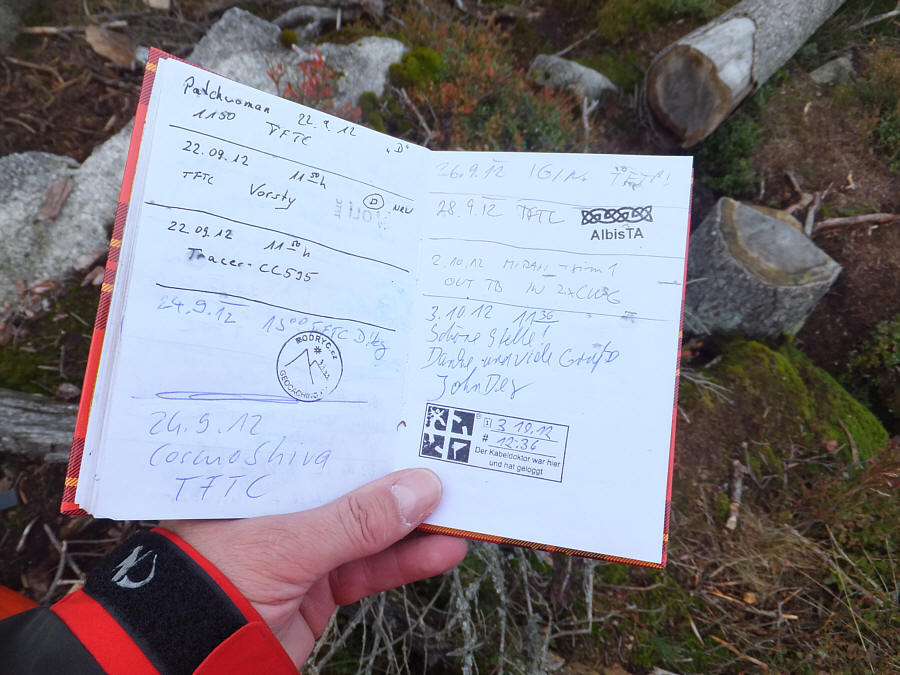 Patchwoman 22.9.12
1150 TFTC "D"
22.09.12 11 50 h
TFTC Vorsty D NRW
22.09.12 11 50 h
Tracer-CC595
24.9.12 15 00 TFTC
MODRYC.cz
GEOCACHING
24.9.12
CosmoShiva
TFTC
26.9.12
28.9.12 TFTC
AlbisTA
2.10.12
OUT TB IN
3.10.12 11 36
Schöne Stelle!
Danke und viele Grüße
JohnDey
1 3 10.12
# 12:36
Der Kabeldoktor war hier
und hat geloggt